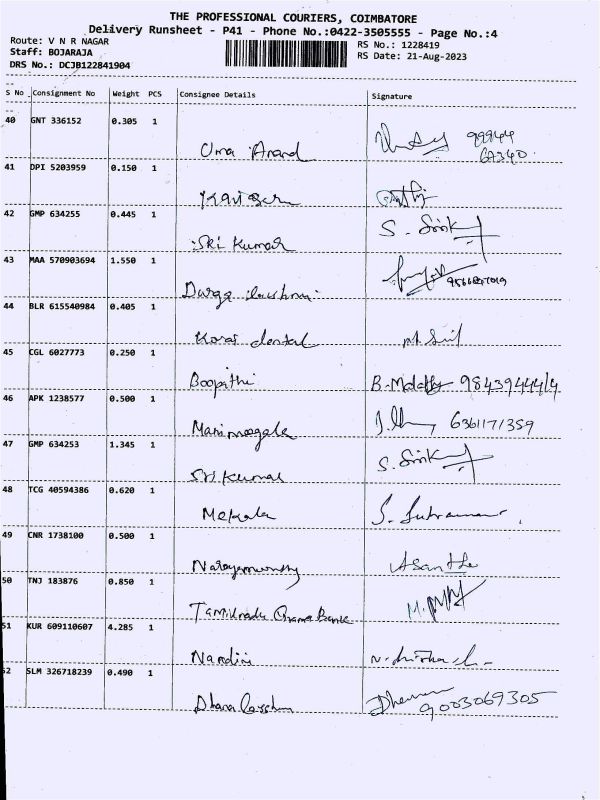 THE PROFESSIONAL COURIERS, COIMBATORE
Delivery Runsheet - P41 - Phone No.:0422-3505555 - Page No.:4
Route: V N R NAGAR
RS No.: 1228419
Staff: BOJARAJA
RS Date: 21-Aug-2023
DRS No.: DCJB122841904
S No Consignment No Weight PCS Consignee Details Signature
40 GNT 336152 0.305 1
Uma Anand 99944
67340
41 DPI 5203959 0.150 1
42 GMP 634255 0.445 1
Sri Kumar S.
43 MAA 570903694 1.550 1
Durga
44 BLR 615540984 0.405 1
dental
45 CGL 6027773 0.250 1
Boopathi B.
46 APK 1238577 0.500 1
6361171359
47 GMP 634253 1.345 1
Sri Kumar S.
48 TCG 40594386 0.620 1
Mekala S.
49 CNR 1738100 0.500 1
50 TNJ 183876 0.850 1
Tamilnadu Grama Bank M.
51 KUR 609110607 4.285 1
Nandini
52 SLM 326718239 0.490 1
9003069305